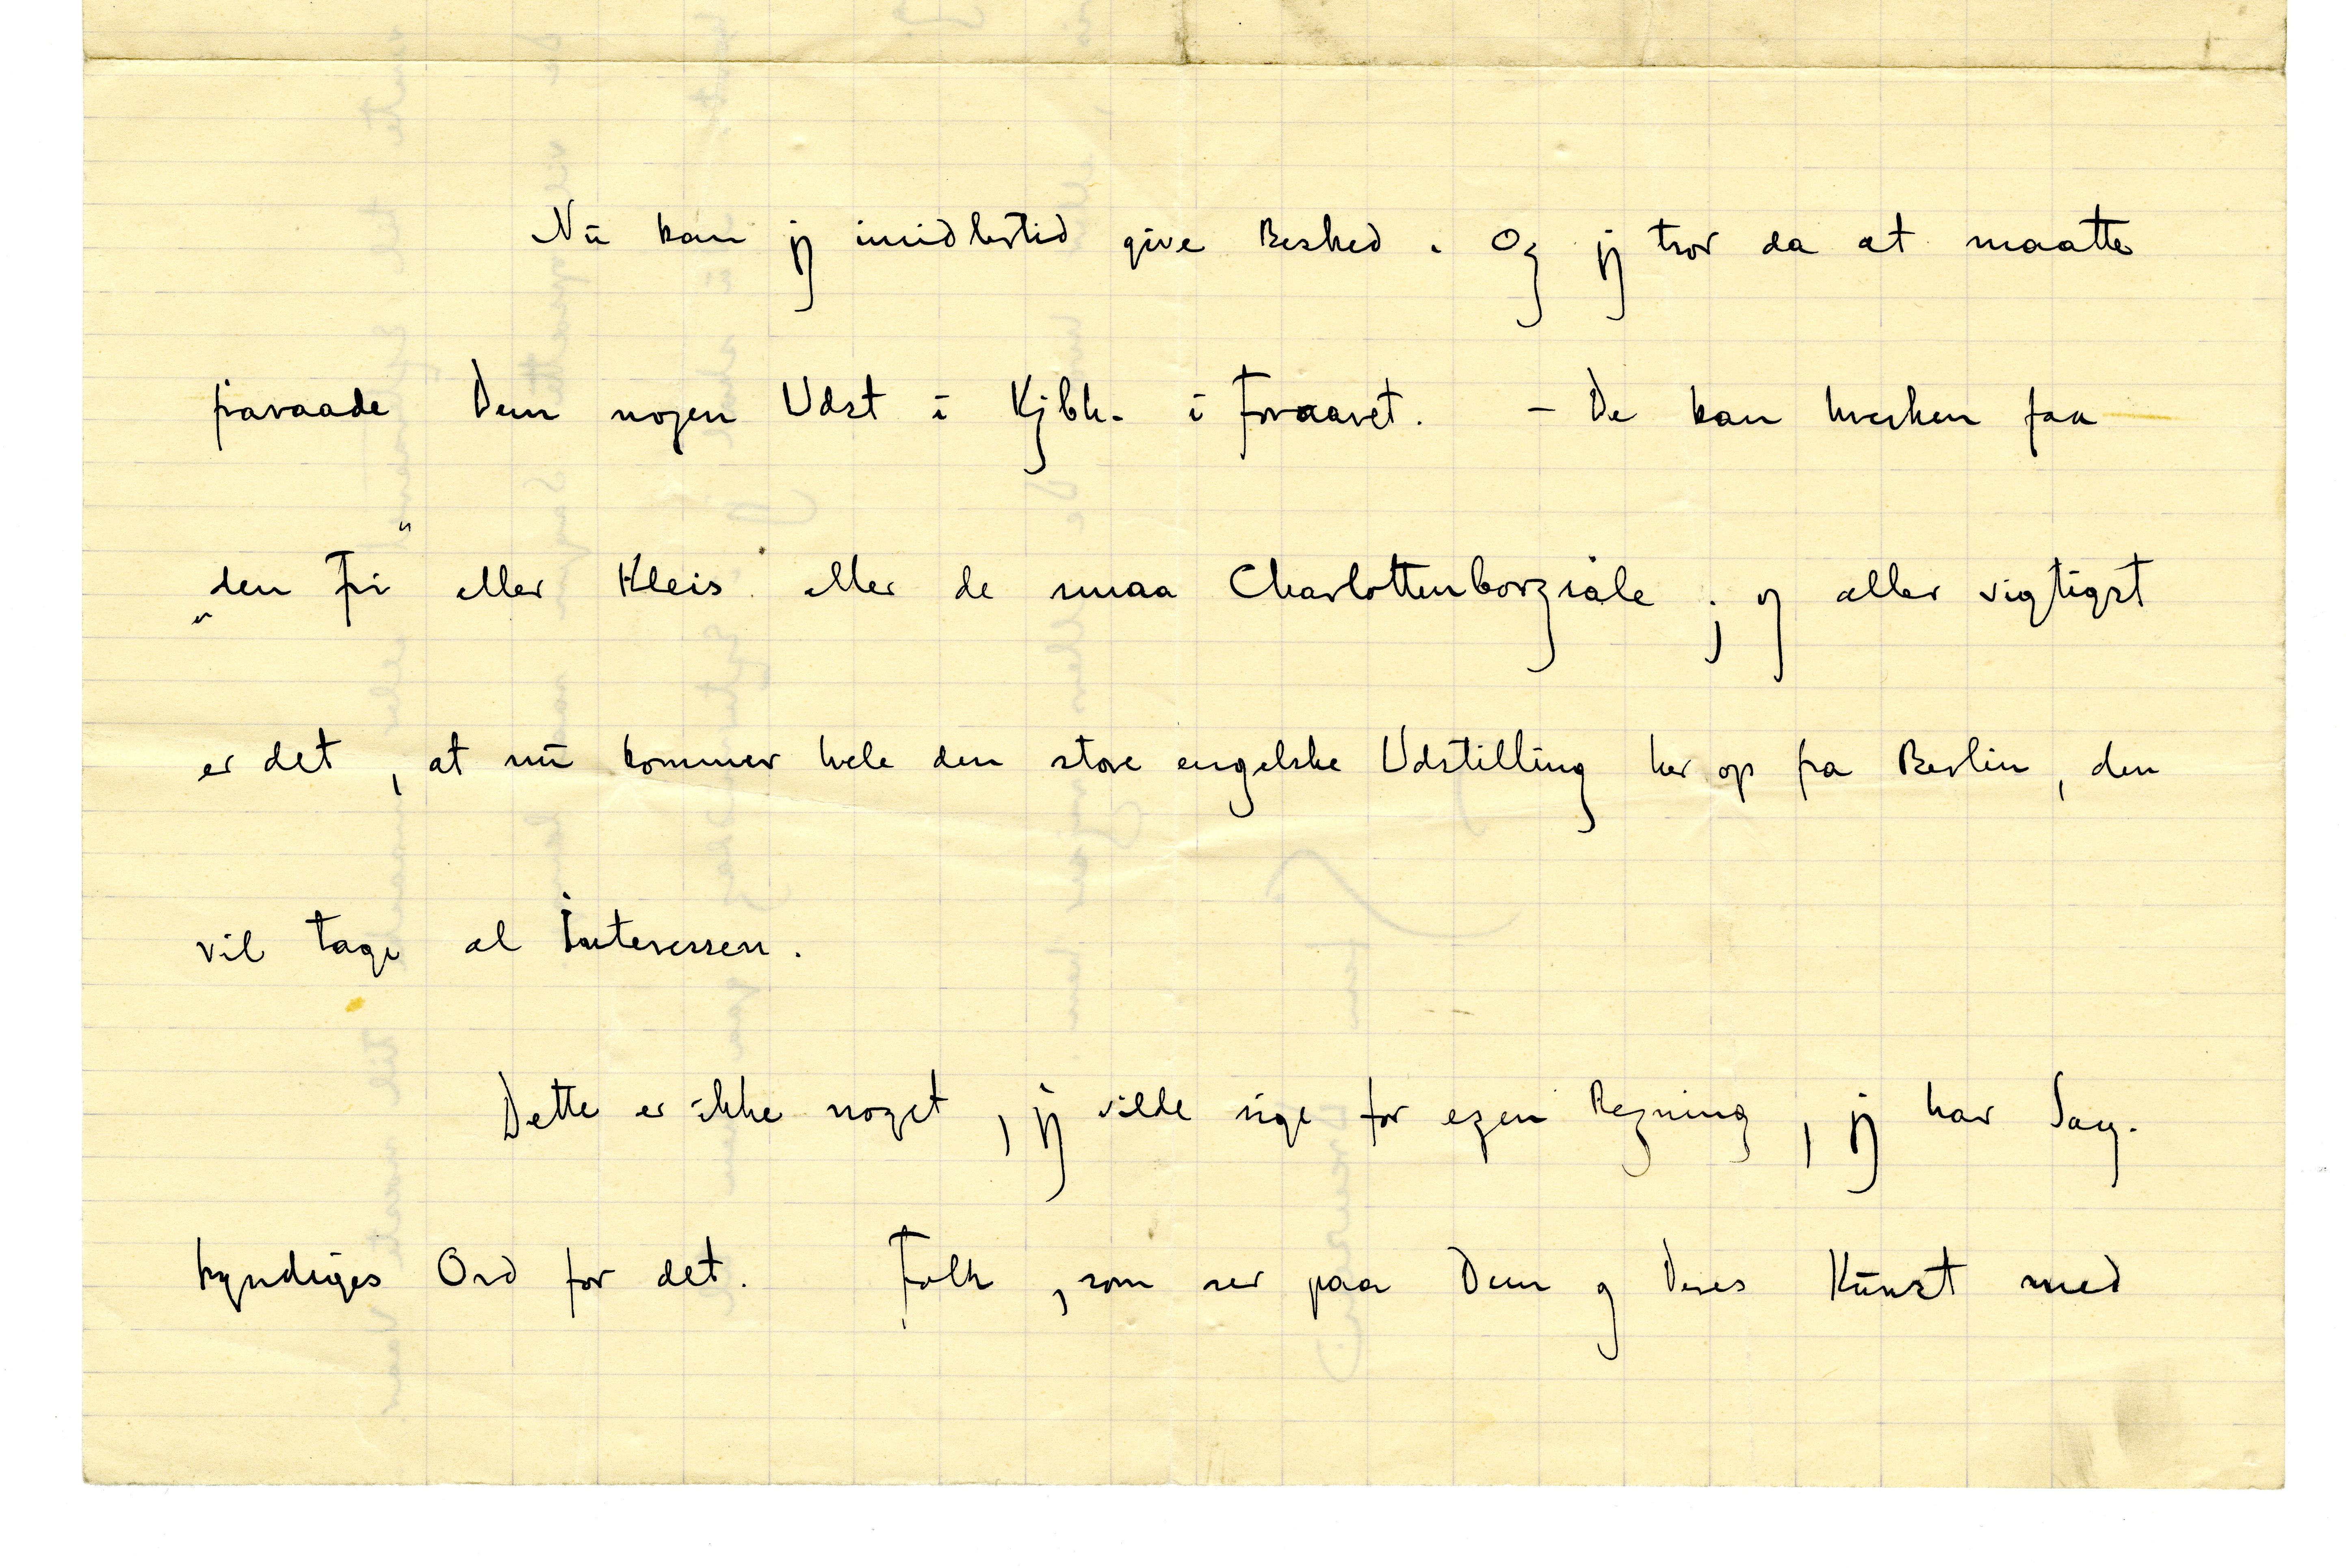 Nu kan jeg imidlertid give Besked. Og jeg tror da at maatte
fraraade Dem nogen Udst i Kjbh. i Foraaret. – De kan hverken faa
„den Fri“ eller Kleis eller de smaa Charlottenborgsale; og aller vigtigst
er det, at nu kommer hele den store engelske Udstilling her op fra Berlin, den
vil tage al Interessen.
Dette er ikke noget, jeg vilde sige for egen Regning, jeg har Sag-
kyndiges Ord for det. Folk, som ser paa Dem og Deres Kunst med